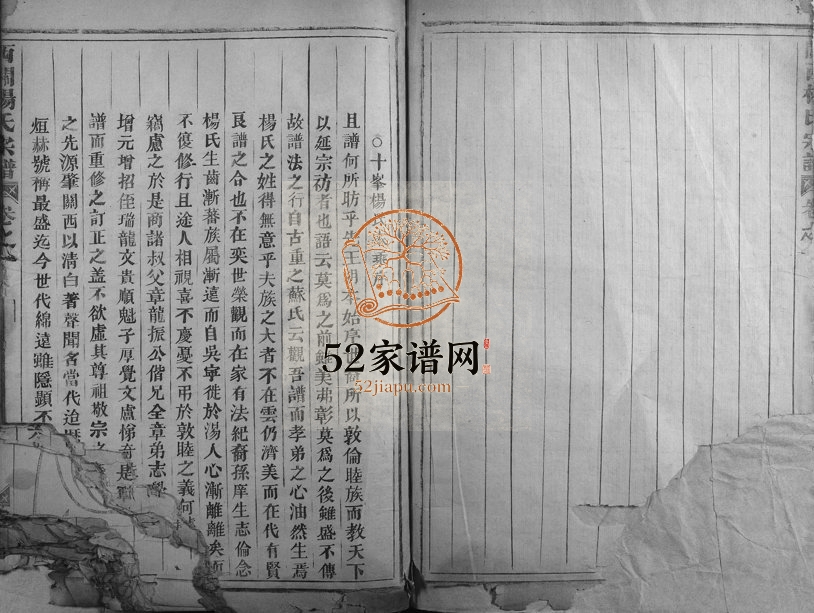 ○十峯楊
且譜何所昉乎
所以敦倫睦族而教天下
以延宗祊者也語云莫爲之前雖美弗彰莫爲之後雖盛不傳
故譜法之行自古重之蘇氏云觀吾譜而孝弟之心油然生焉
楊氏之姓得無意乎夫族之大者不在雲仍濟美而在代有賢
良譜之合也不在奕世榮觀而在家有法紀裔孫庠生志倫念
楊氏生齒漸蕃族屬漸遠而自吳寧徙於湯人心漸離離矣
不復修行且途人相視喜不慶憂不弔於敦睦之義何
竊慮之於是商諸叔父章龍振公偕兄全章弟志
增元增招侄瑞龍文貴順魁子厚覺文盧悌奇是
譜而重修之訂正之盖不欲虛其尊祖敬宗之
之先源肇關西以清白著聲聞名當代迨
烜赫號稱最盛迄今世代綿遠雖隱顯不
西關楊氏宗譜
卷之
楊氏宗譜
52家谱网
52jiapu.com